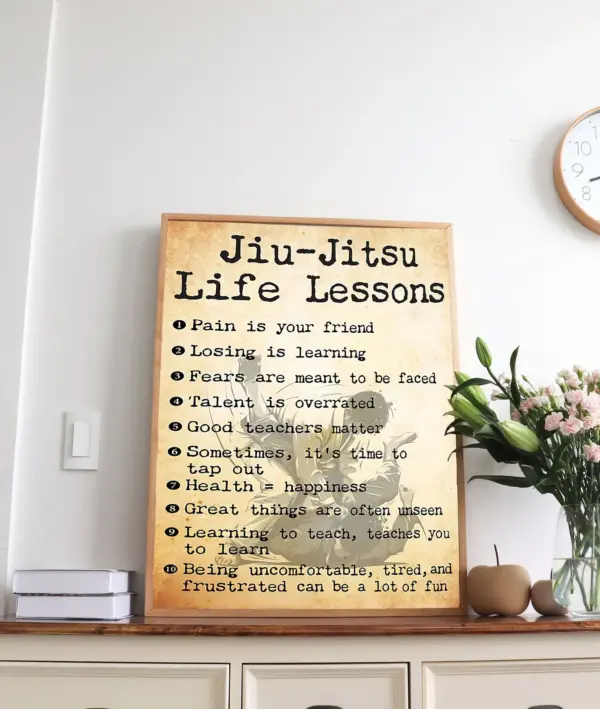 Jiu-Jitsu
Life Lessons
1 Pain is your friend
2 Losing is learning
3 Fears are meant to be faced
4 Talent is overrated
5 Good teachers matter
6 Sometimes, it's time to
tap out
7 Health = happiness
8 Great things are often unseen
9 Learning to teach, teaches you
to learn
10 Being uncomfortable, tired, and
frustrated can be a lot of fun
10
9
8